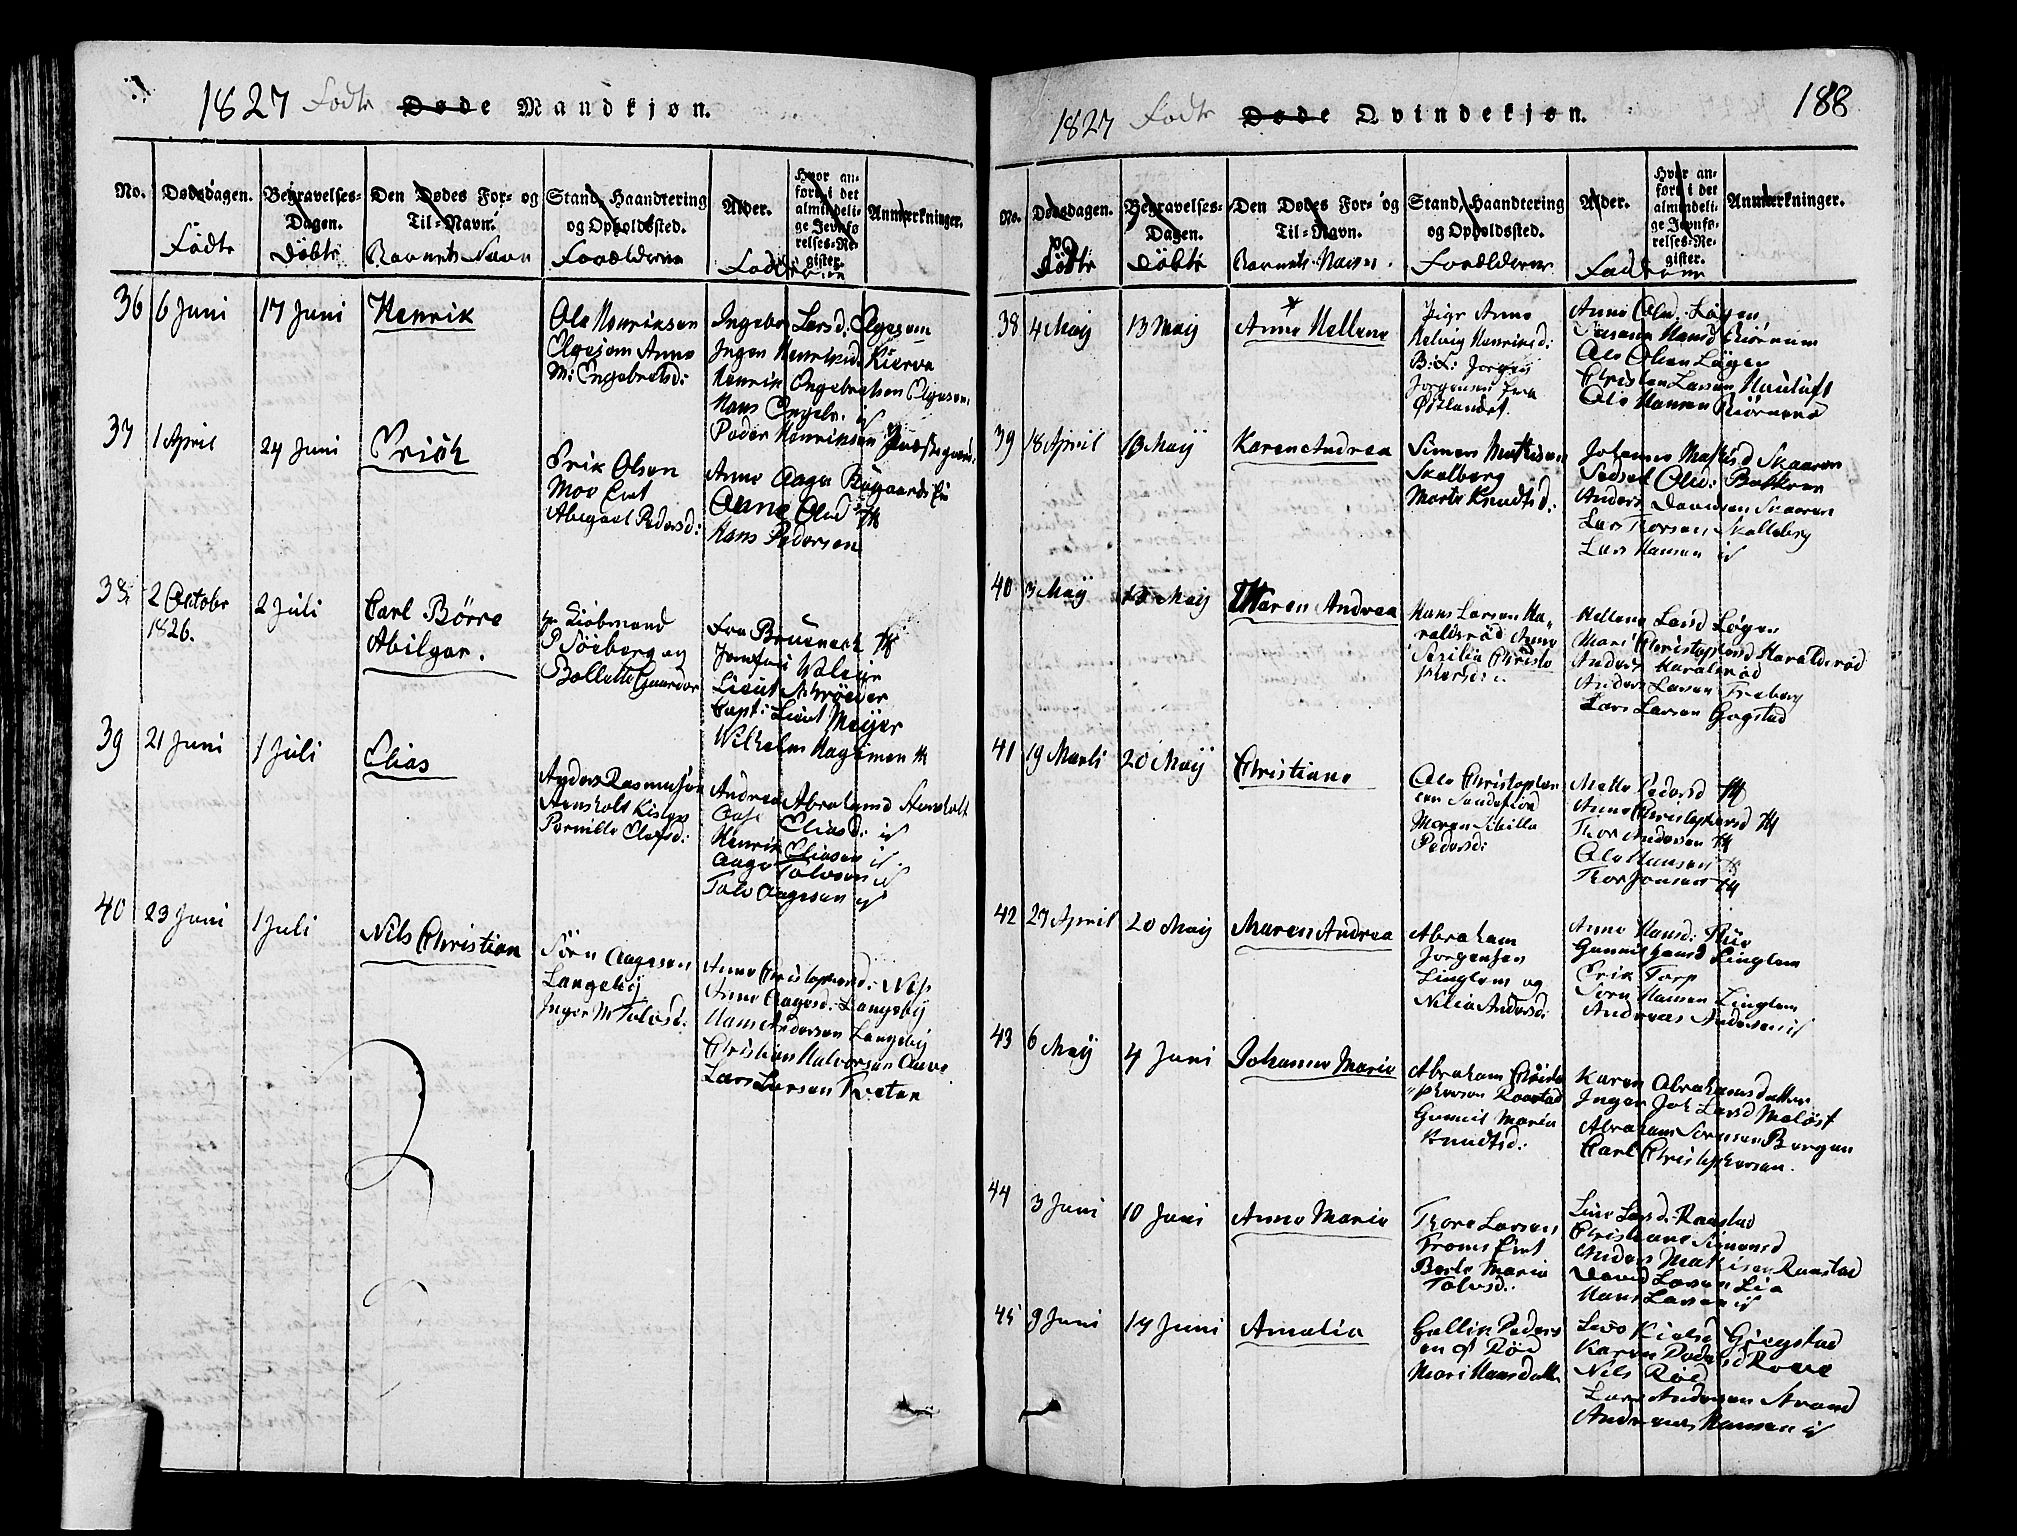 1827 Fødte Døde Mandkjøn.
No.
Dødsdagen.
Fødte
Begravelses-
Dagen.
Døbte
Den Dødes For- og
Til-Navn.
Barnets Navn
Stand, Haandtering
og Opholdssted.
Forældrene
Alder.
Hvor an-
fort i det
almindeli-
ge Jevnfø-
relses-Re-
gister.
Anmærkninger.
Fadderne
36 6 Juni 17 Juni Henrik
Ole Henriksen
Elgesem Anne
M: Engebretsd:
Ingebor Larsd: Elgesem
Inger Henriksd: Kierre
Henrik Engebretsen Elgesem
Hans Engebr.
Peder Henriksen
37 1 April 24 Juni Erich
Erik Olsen
Moe Eiet
Abigael Pedersd:
Anne Aage
Anne Olsd
Hans Pedersen
38 2 Octobr
1826.
2 Juli
Carl Børre
Abilgar.
P Søeberg og
Bollette Gaarder
Fru Bruenech
Jomfru
Lieut Schrøeder
Capt: Lieut Meyer
Wilhelm
39 21 Juni 1 Juli Elias
Anders Rasmusen
Pernille Olefsd:
Andrea Abrahamsd
Eliasd: ib
Henrik Eliasen ib
Aage Tolvsen ib
Tolv Aagesen ib
40 23 Juni 1 Juli Nils Christian
Sørn Aagesen
Langeby
Inger M Tolvsd:
Anne Christophersd:
Anne Aagesd: Langeby
Hans Andersen Langeby
Christian Halvorsen Aave
Lars Larsen Treten
1827 Fødte Døde Qvindekjøn.
188
No.
Dødsdagen.
Fødte
Begravelses-
Dagen.
Døbte
Den Dødes For- og
Til-Navn.
Barnets Navn.
Stand, Haandtering
og Opholdssted.
Forældrene
Alder.
Hvor an-
fort i det
almindeli-
ge Jevnfø-
relses-Re-
gister.
Anmærkninger.
Fadderne
38 4 Maij 13 Maij Anne Hellene
Pige Anne
Helvig Henriksd:
B: F: Jorgen
Jorgensen fra
Østlandet.
Anne Olsd. Løgen
Hansd
Ole Olsen Løgen
Christen Larsen Hauluft
Ole Hansen
39 18 April 13 Maij Karen Andrea
Simen Mathisen
Skalberg
Marte Knudtsd:
Johanne Mathisd Skaaren
Olsd: Bakken
Anders Davidsen Skaaren
Lars Thorsen Skalleberg
Lars Hansen ib
40 3 Maij 13 Maij Maren Andrea
Hans Larsen Ha-
raldsrød Anne
Sesilia Christo
phersd:
Hellene Larsd Løgen
Mari Christophersd Haraldsrød
Anders Haralsrød
Anders Larsen Freberg
Lars Larsen Gogstad
41 19 Marti 20 Maij Christiane
Ole Christophers
sen Sandefiord
Maren Sibilla
Pedersd:
Mette Pedersd
Anne Christophersd
Thor Andersen
Ole Hansen
Thor Jansen
42 27 April 20 Maij Maren Andrea
Abraham
Jorgensen
Linglem og
Nilia Andersd:
Anne Hansd:
Gunnil Hansd Linglem
Erik Torp
Sørn Hansen Linglem
Andreas Andersen ib
43 6 Maij 4 Juni Johanne Marie
Abraham Christo
phersen Raastad
Gunnil Maria
Knudtsd:
Karen Abrahamsdatter
Inger Joh Larsd Meløst
Abraham Sørensen Bergan
Carl Christophersen.
44 3 Juni 10 Juni Anne Marie
Thore Larsen
Berte Maria
Tolvsd:
Line Larsd: Raastad
Christiane Simensd
Anders Mathisen Raastad
David Larsen Lia
Hans Larsen ib
45 9 Juni 17 Juni Amalia
Gullik Peders
en Rød
Mari Hansdatter
Karen Pedersd
Nils Rød
Lars Andersen Strand
Andreas Hansen ib